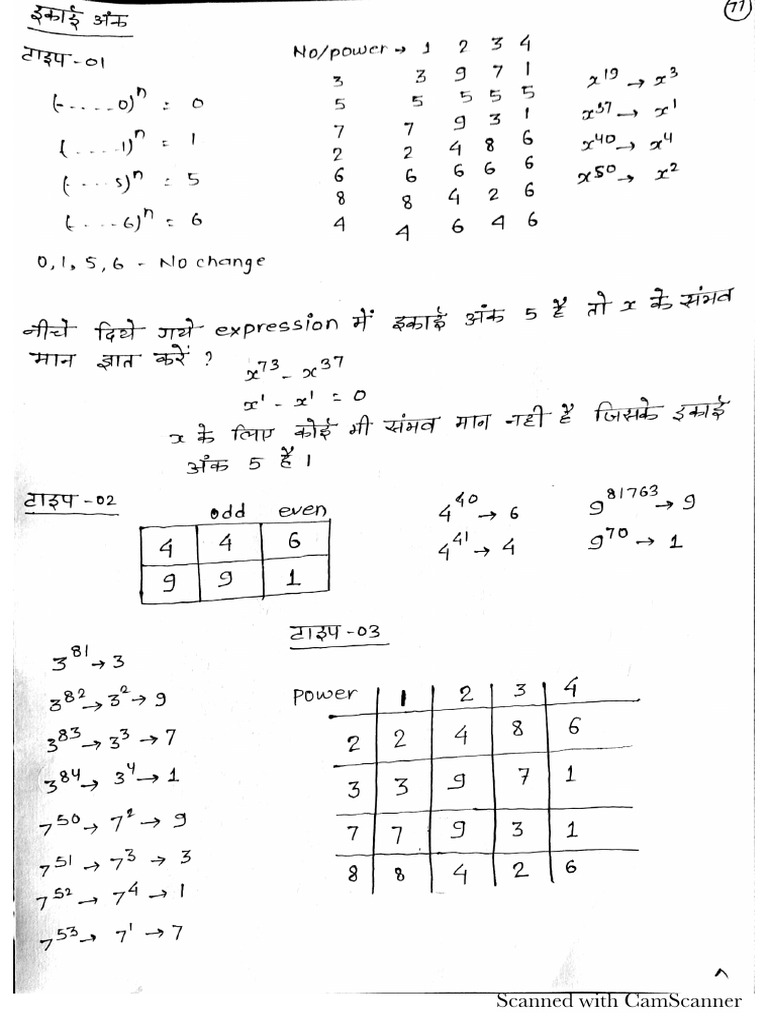 77
इकाई अंक
टाइप-01
(-....0)ⁿ = 0
(....1)ⁿ = 1
(-...5)ⁿ = 5
(-...6)ⁿ = 6
0,1,5,6 - No change
No/power → 1 2 3 4
3 3 9 7 1
5 5 5 5 5
7 7 9 3 1
2 2 4 8 6
6 6 6 6 6
8 8 4 2 6
4 4 6 4 6
x¹⁹ → x³
x³⁷ → x¹
x⁴⁰ → x⁴
x⁵⁰ → x²
नीचे दिये गये expression में इकाई अंक 5 है तो x के संभव
मान ज्ञात करें ?
x⁷³ - x³⁷
x¹ - x¹ = 0
x के लिए कोई भी संभव मान नही है जिसके इकाई
अंक 5 है।
टाइप-02
odd even
4 4 6
9 9 1
4⁴⁰ → 6
4⁴¹ → 4
9⁸¹⁷⁶³ → 9
9⁷⁰ → 1
3⁸¹ → 3
3⁸² → 3² → 9
3⁸³ → 3³ → 7
3⁸⁴ → 3⁴ → 1
7⁵⁰ → 7² → 9
7⁵¹ → 7³ → 3
7⁵² → 7⁴ → 1
7⁵³ → 7¹ → 7
टाइप-03
Power 1 2 3 4
2 2 4 8 6
3 3 9 7 1
7 7 9 3 1
8 8 4 2 6
Scanned with CamScanner